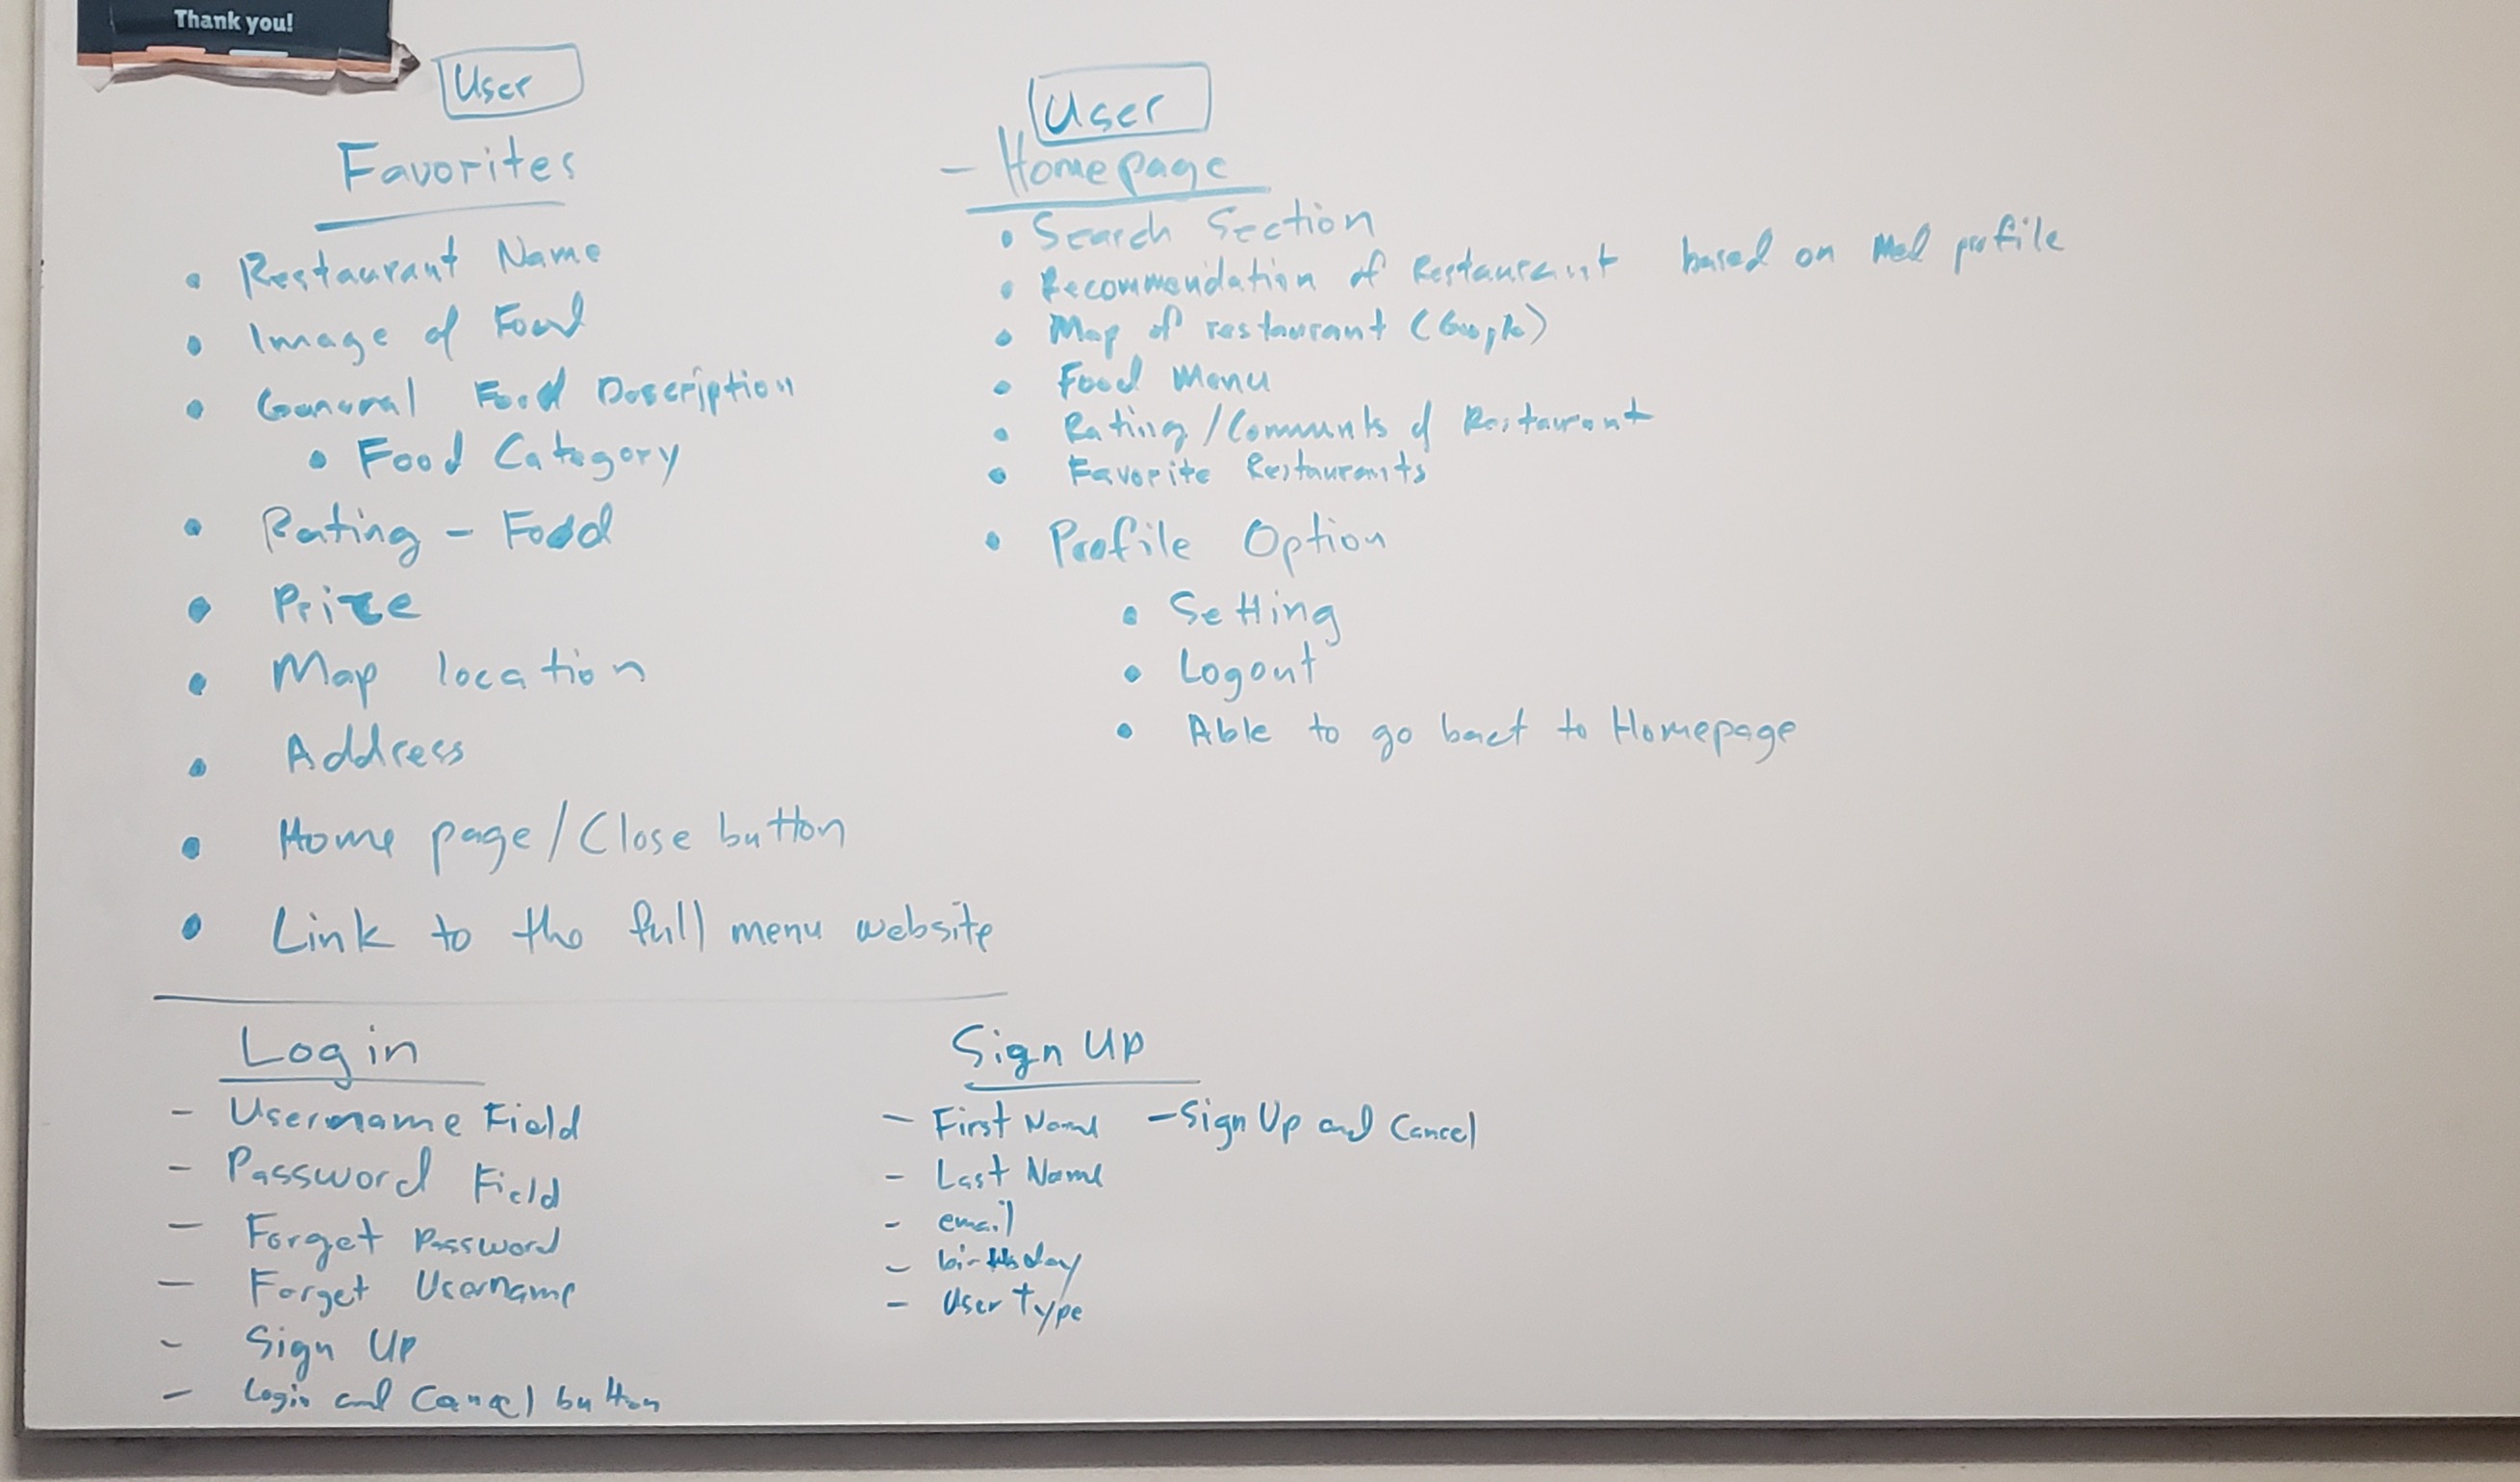 Thank you!
User
Favorites
• Restaurant Name
• Image of Food
• General Food Description
• Food Category
• Rating - Food
• Price
• Map location
• Address
• Home page/Close button
• Link to the full menu website
User
- Homepage
• Search Section
• Recommendation of Restaurant based on profile
• Map of restaurant (Google)
• Food Menu
• Rating/Comments of Restaurant
• Favorite Restaurants
• Profile Option
• Setting
• Logout
• Able to go back to Homepage
Login
- Username Field
- Password Field
- Forget Password
- Forget Username
- Sign Up
- Login and Cancel button
Sign Up
- First Name - Sign Up and Cancel
- Last Name
- email
- birthday
- User type